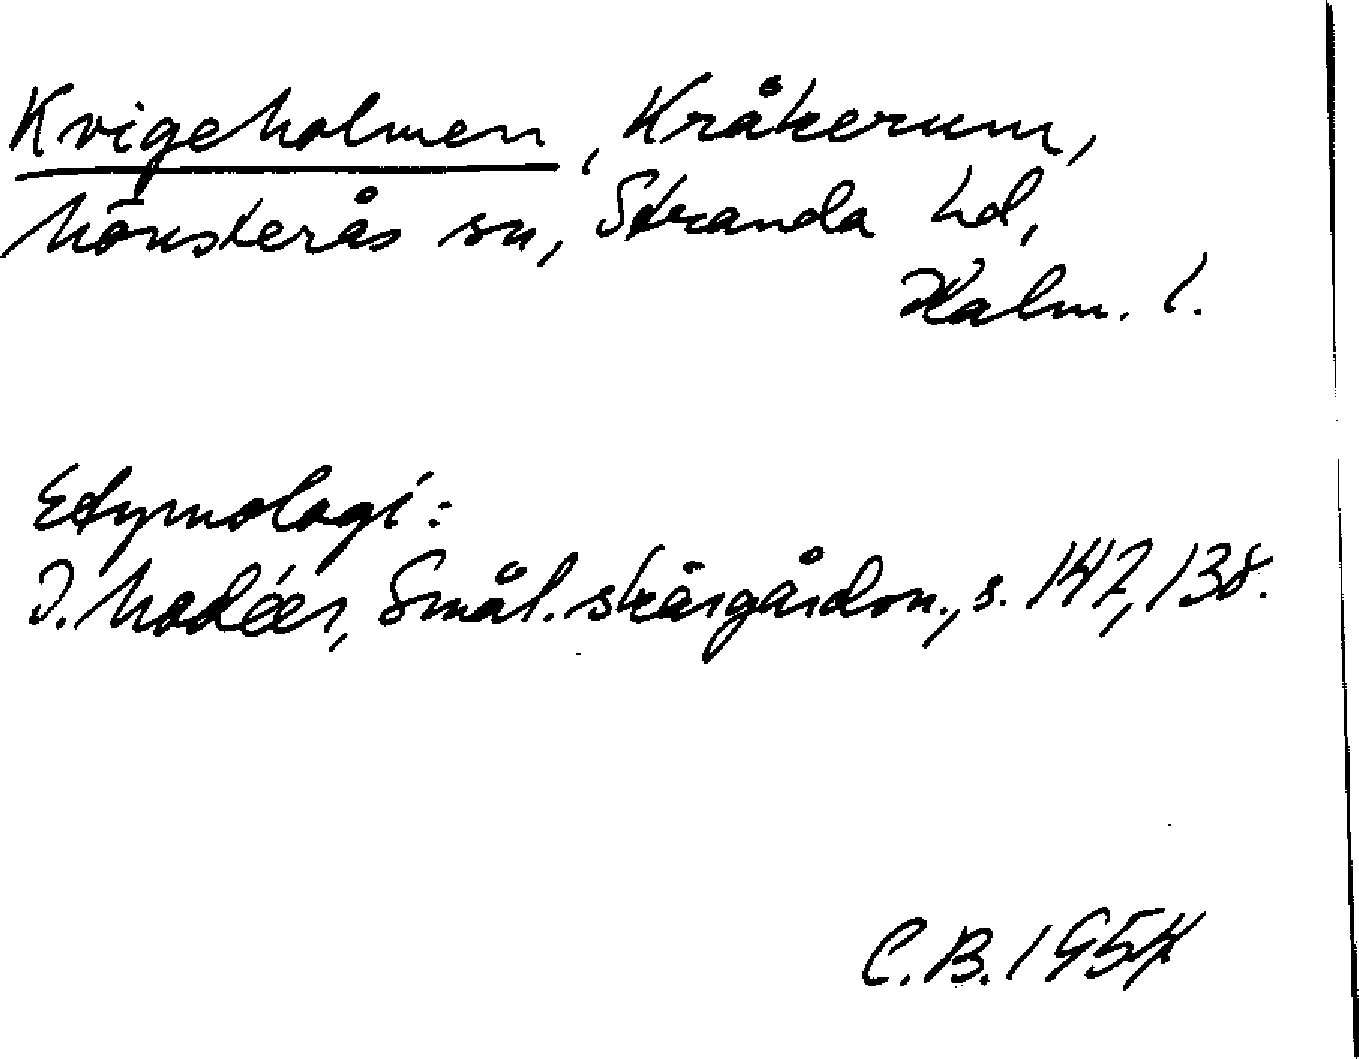 Kvigeholmen, Kråkerum,
Mönsterås sn, Stranda hd,
Kalm. l.
Etymologi:
I. Modéer, Smål. skärgårdsn., s. 147, 138.
C.B. 1954